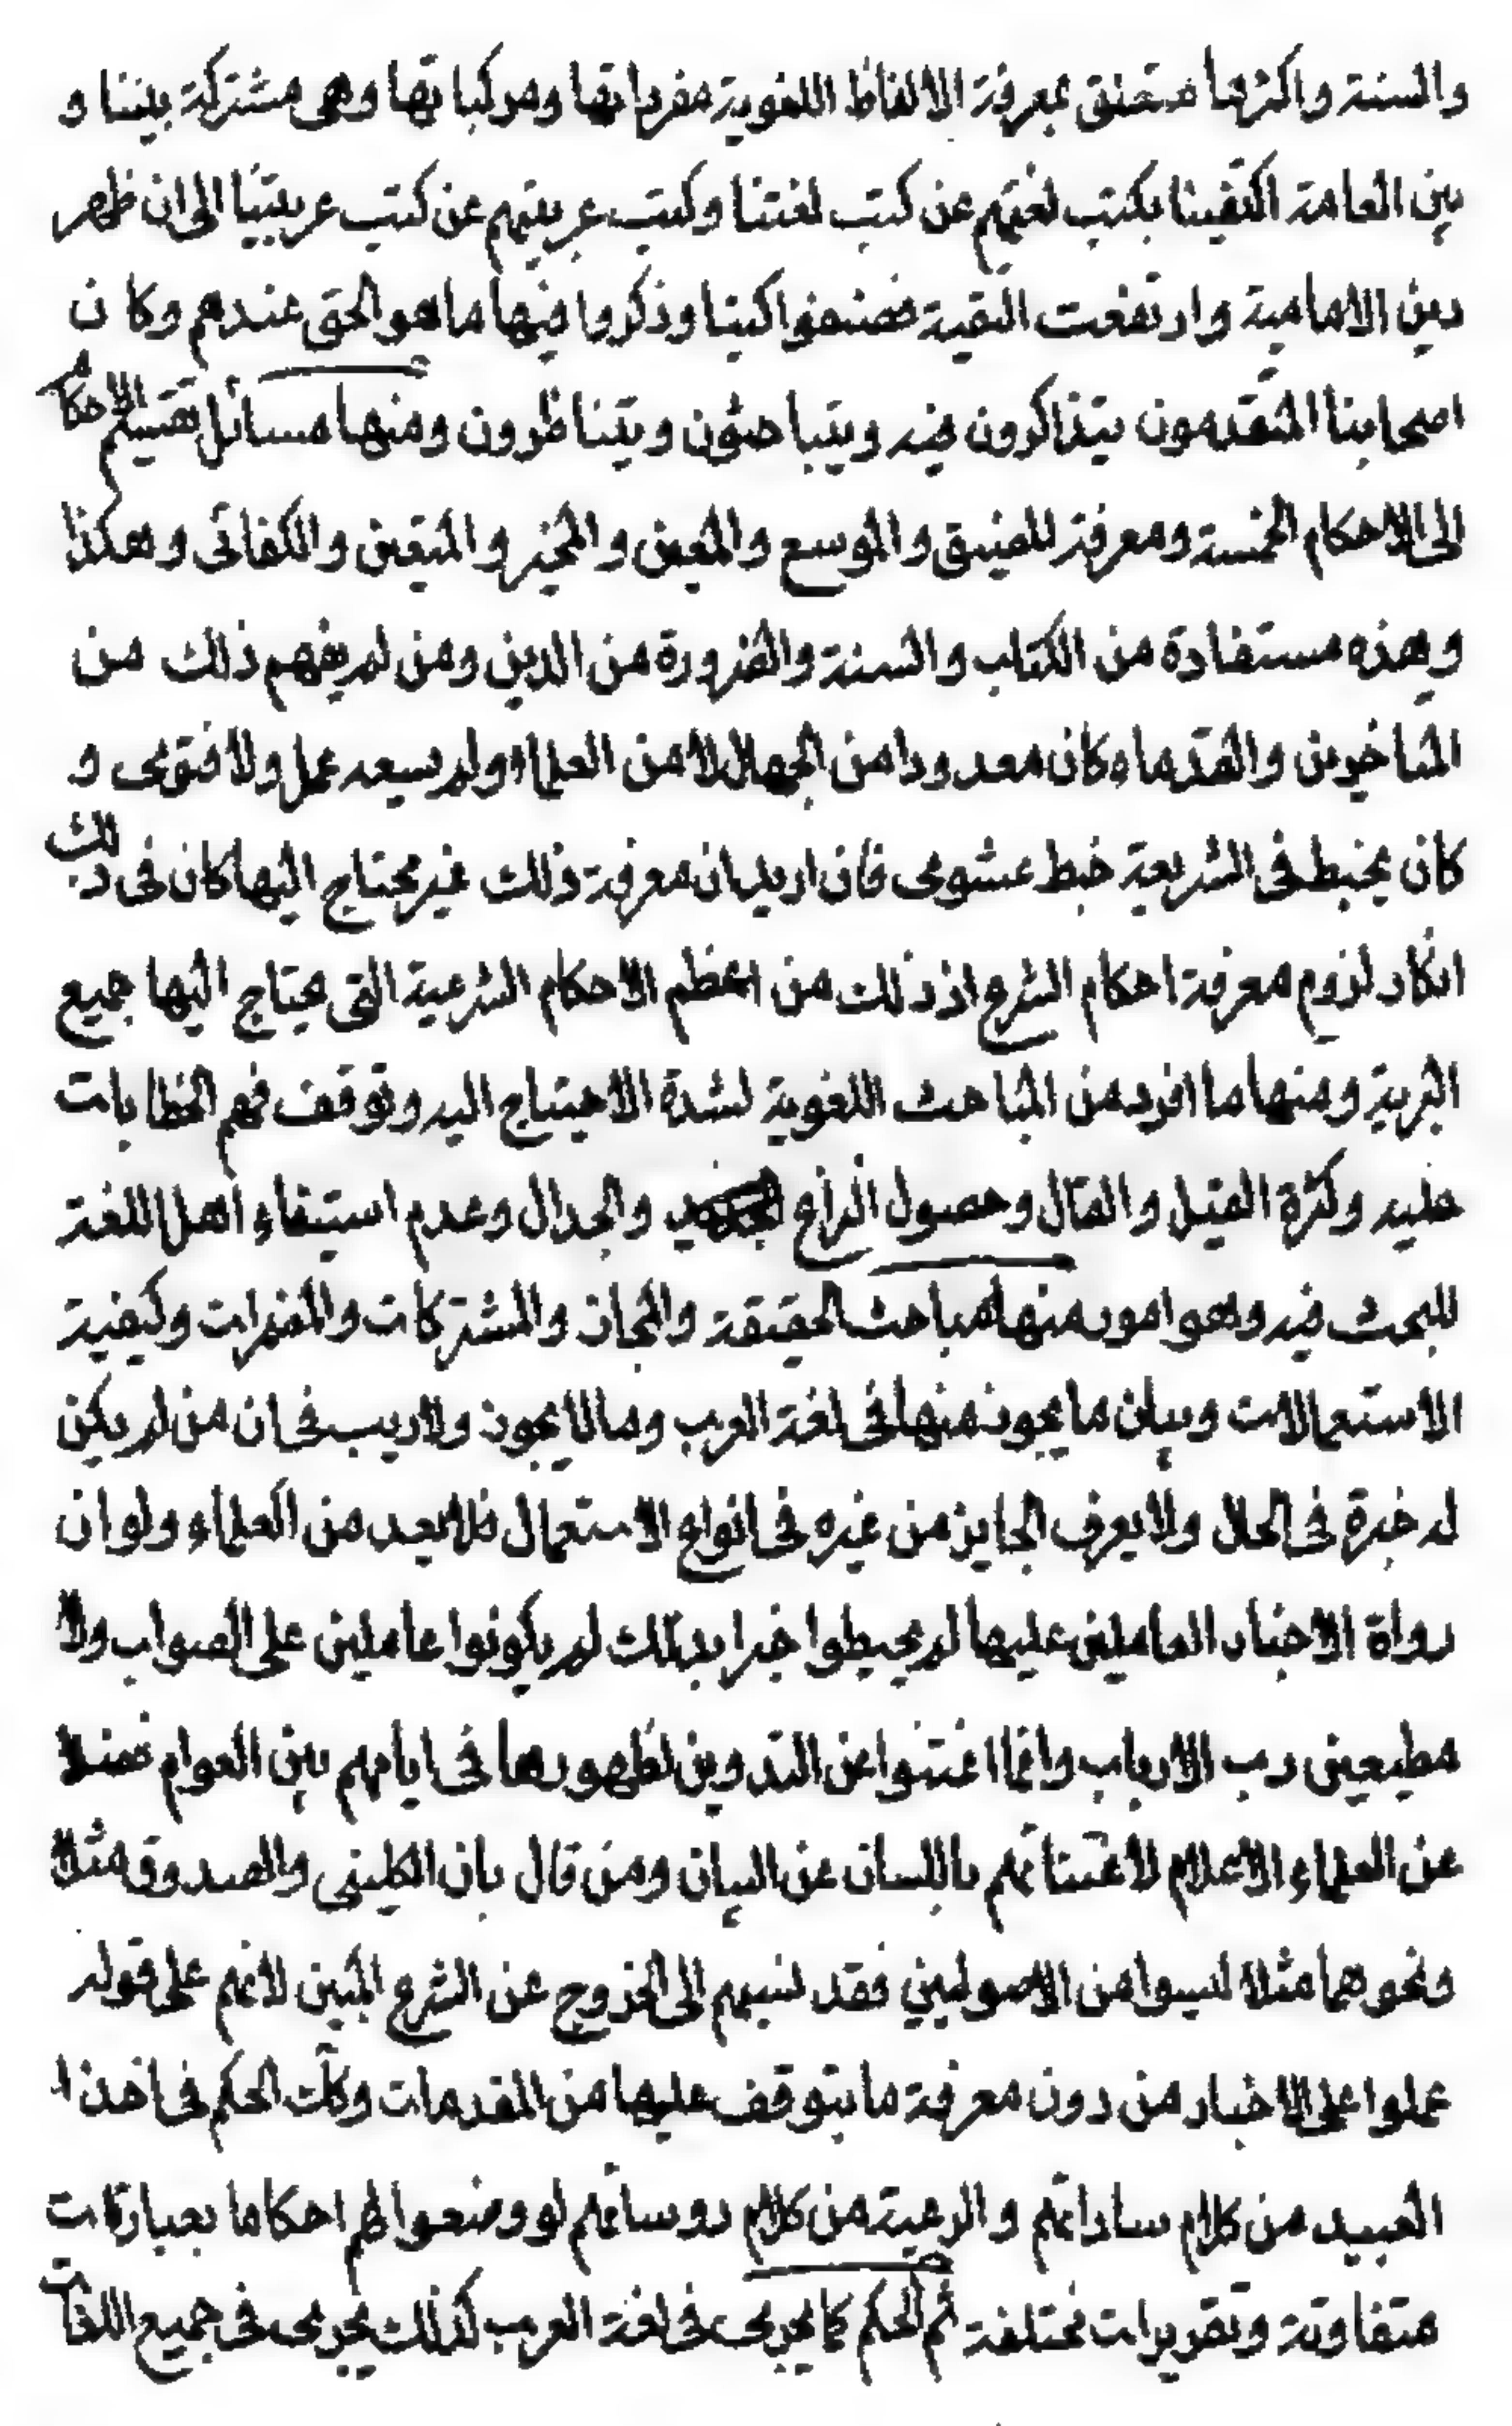 والسنة واكثرها متعلق بمعرفة الالفاظ اللغوية مفرداتها ومركباتها وهى مشتركة بيننا و
بين العامة اكتفينا بكتب لغتهم عن كتب لغتنا وكتب عربيتهم عن كتب عربيتنا الى ان ظهر
دين الامامية وارتفعت التقية فصنفوا كتبا وذكروا فيها ما هو الحق عندهم وكان
اصحابنا المتقدمون يتذاكرون فيه ويتباحثون ويتناظرون ومنها مسائل تقسيم الاحكام
الى الاحكام الخمسة ومعرفة المضيق والموسع والمعين والمخير والمتعين والكفائى وهكذا
وهذه مستفادة من الكتاب والسنة والضرورة من الدين ومن لم يفهم ذلك من
المتاخرين والقدماء كان معدودا من الجهال لا من العلماء ولم يسعه عمل ولا فتوى و
كان يخبط فى الشريعة خبط عشوى فان اريد ان معرفة ذلك غير محتاج اليها كان فى ذلك
انكار لزوم معرفة احكام الشرع اذ ذلك من اعظم الاحكام الشرعية التى يحتاج اليها جميع
البرية ومنها ما افرد من المباحث اللغوية لشدة الاحتياج اليه وتوقف فهم الخطابات
عليه وكثرة القيل والقال وحصول النزاع والجدال وعدم استيفاء اهل اللغة
للبحث فيه وهو امور منها مباحث الحقيقة والمجاز والمشتركات والمفردات وكيفية
الاستعمالات وبيان ما يجوز منها فى لغة العرب وما لا يجوز ولا ريب فى ان من لم يكن
له خبرة فى الحال ولا يعرف الجايز من غيره فى انواع الاستعمال فلا يعد من العلماء ولو ان
رواة الاخبار العاملين عليها لم يحيطوا خبرا بذلك لم يكونوا عاملين على الصواب ولا
مطيعين رب الارباب وانما اغتنوا عن التدوين لظهورها فى ايامهم بين العوام فضلا
عن العلماء الاعلام لاغتنائهم باللسان عن البيان ومن قال بان الكلينى والصدوق مثلا
ونحوهما مثلا ليسوا من الاصوليين فقد نسبهم الى الخروج عن الشرع المبين لانهم على قوله
عملوا على الاخبار من دون معرفة ما يتوقف عليها من المقدمات وكك الحكم فى اخذ ا
العبيد من كلام ساداتهم والرعية من كلام روسائهم لو وضعوا لهم احكاما بعبارات
متفاوتة وتقريرات مختلفة ثم الحكم كما يجرى فى لغة العرب كذلك يجرى فى جميع اللغات